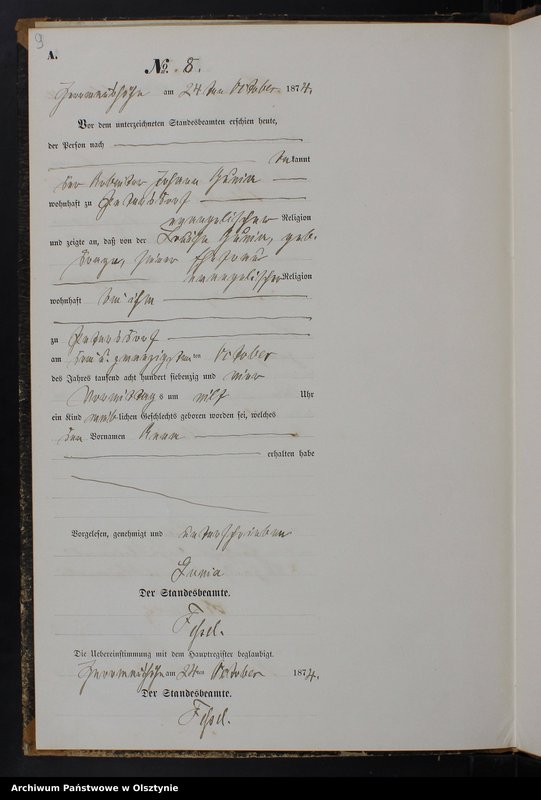 9
A.
No. 8.
am 24 ten October 1874.
Vor dem unterzeichneten Standesbeamten erschien heute,
der Person nach
bekannt
der Arbeiter Johann
wohnhaft zu Petersdorf
evangelischer Religion
und zeigte an, daß von der Louise geb.
seiner Ehefrau
evangelischer Religion
wohnhaft bei ihm
zu Petersdorf
am drei u. zwanzigsten ten October
des Jahres tausend acht hundert siebenzig und vier
Vormittags um elf Uhr
ein Kind weiblichen Geschlechts geboren worden sei, welches
den Vornamen Anna
erhalten habe
Vorgelesen, genehmigt und unterschrieben
Der Standesbeamte.
Die Uebereinstimmung mit dem Hauptregister beglaubigt.
am 24 ten October 1874.
Der Standesbeamte.
Archiwum Państwowe w Olsztynie